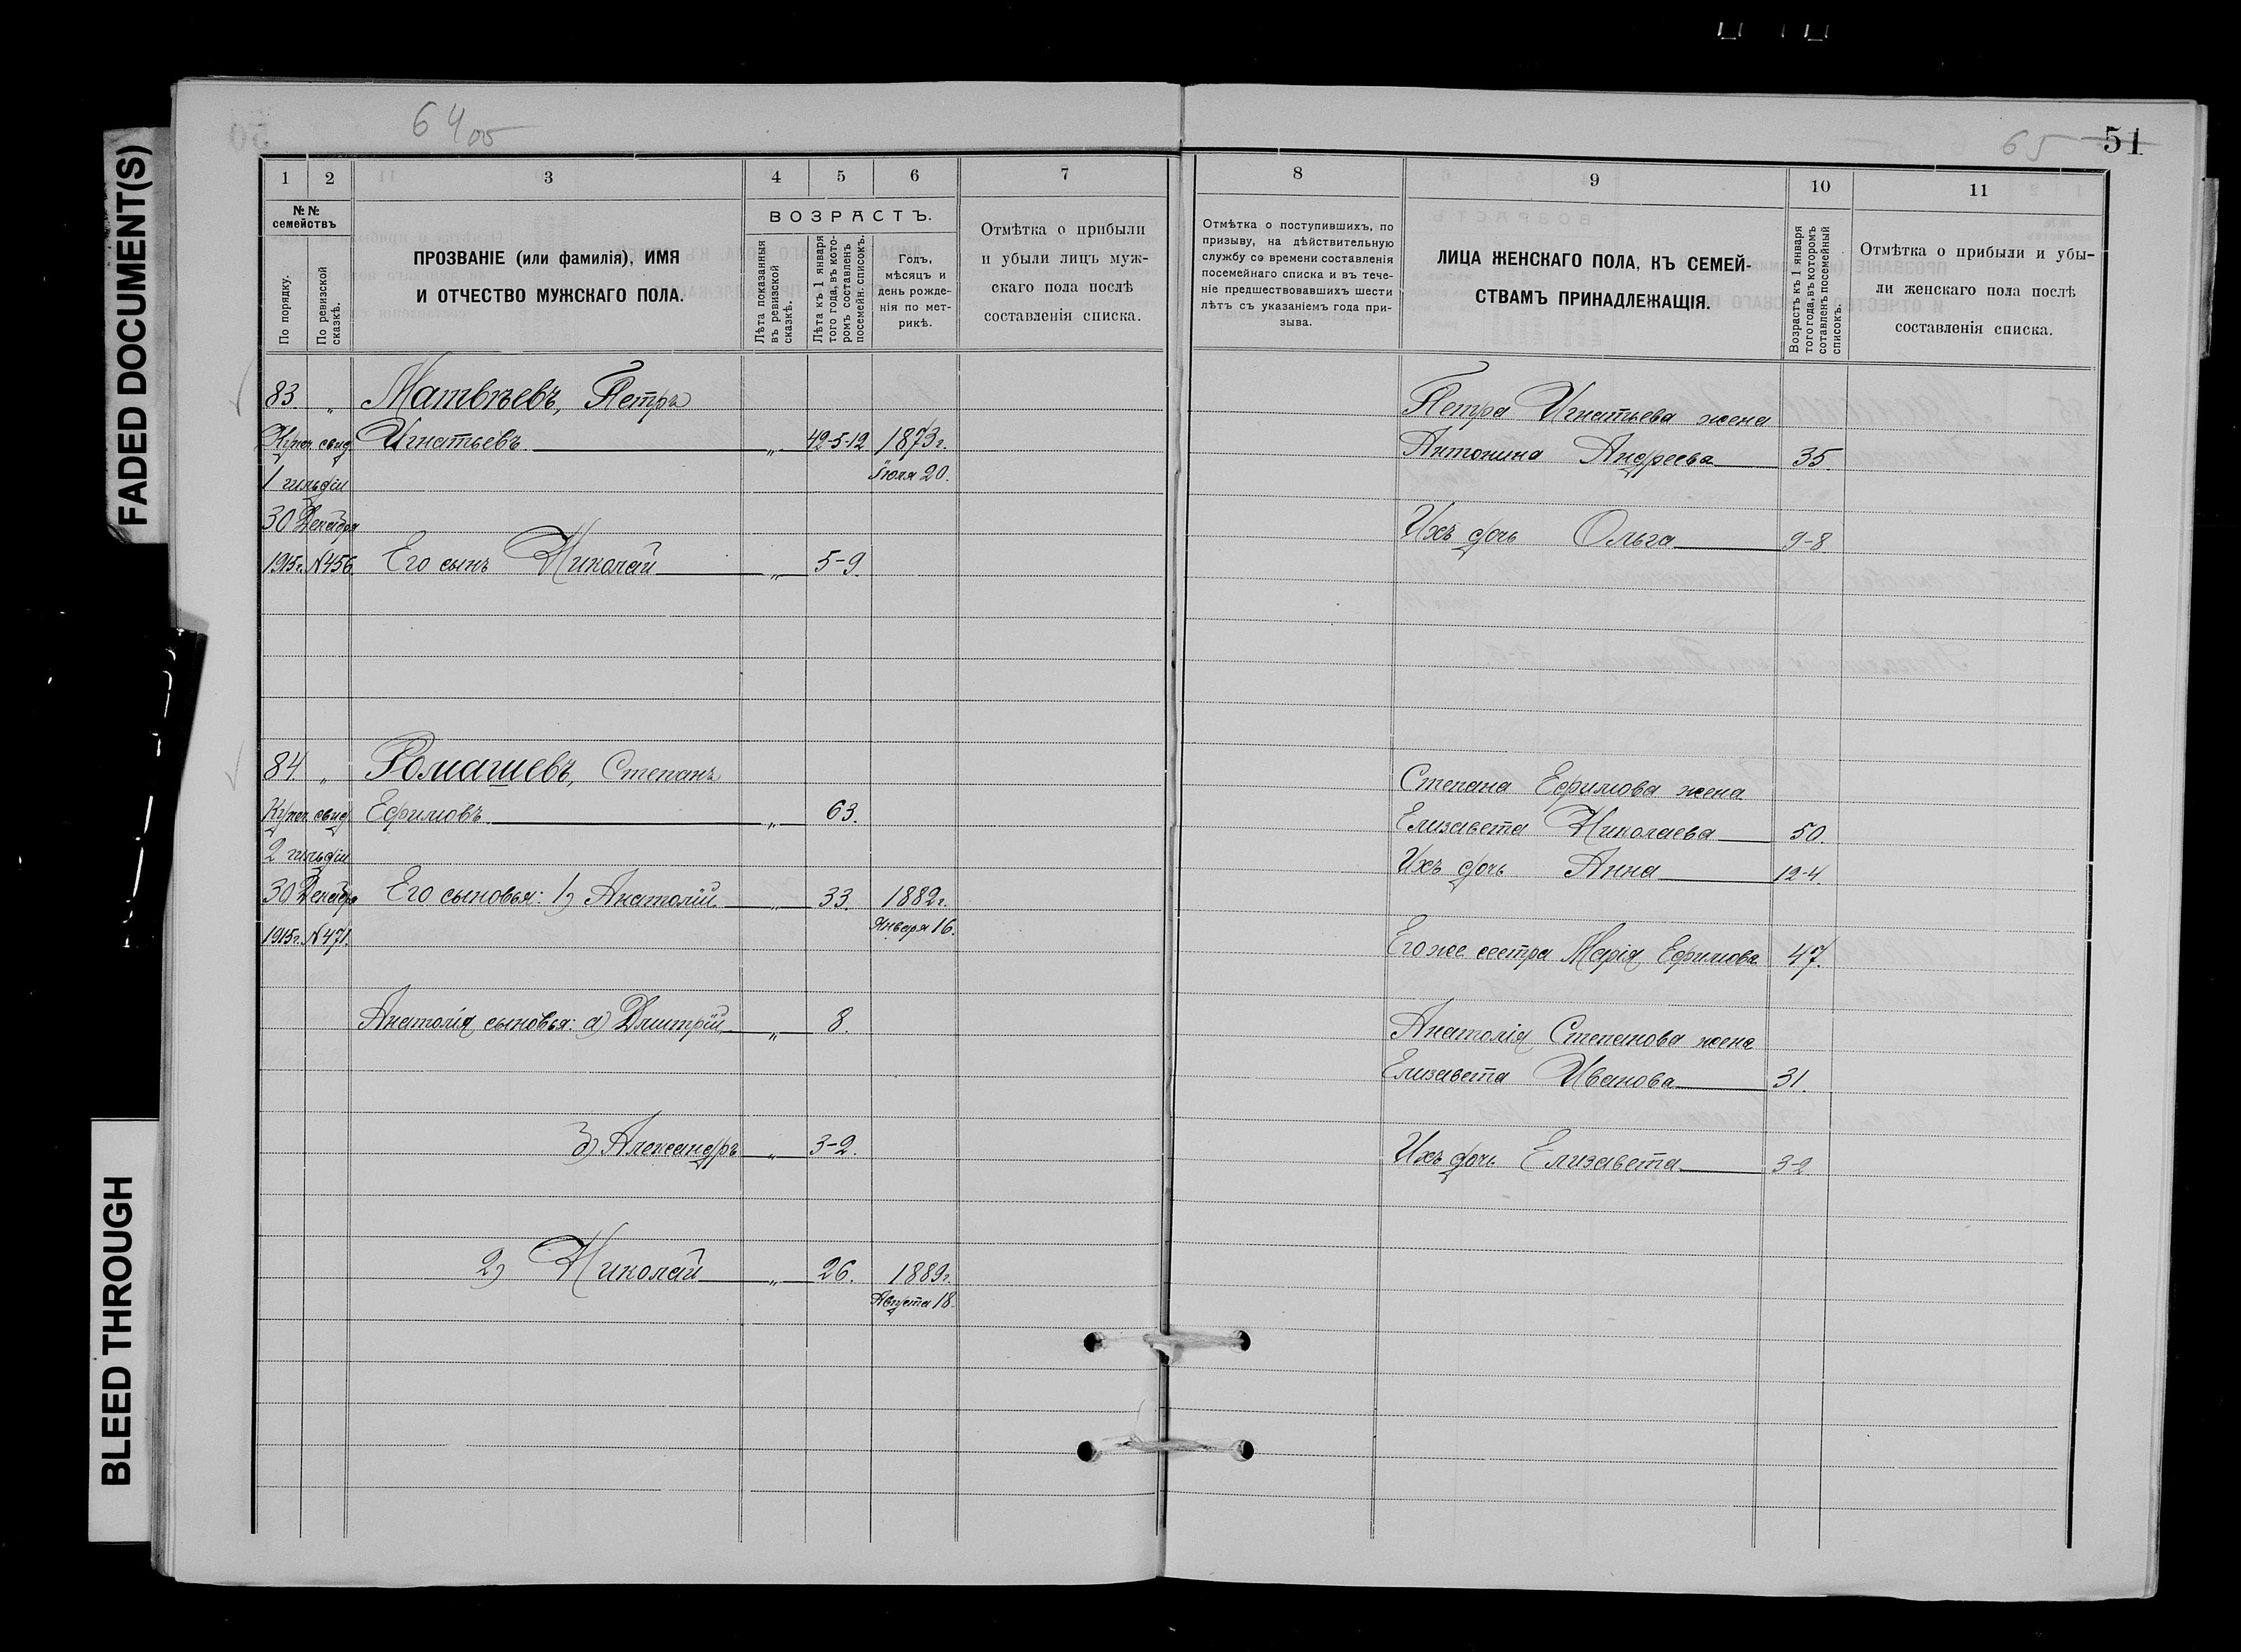 FADED DOCUMENT(S)
BLEED THROUGH
64 об
1 2 3 4 5 6 7
№№ семействъ
По порядку.
По ревизской сказкѣ.
ПРОЗВАНІЕ (или фамилія), ИМЯ
И ОТЧЕСТВО МУЖСКАГО ПОЛА.
ВОЗРАСТЪ.
Лѣта показанныя въ ревизской сказкѣ.
Лѣта къ 1 января того года, въ которомъ составленъ посемейн. списокъ.
Годъ,
мѣсяцъ и
день рожде-
нія по мет-
рикѣ.
Отмѣтка о прибыли
и убыли лицъ муж-
скаго пола послѣ
составленія списка.
83. „ Матвѣевъ, Петръ
Купеч. свид. Игнатьевъ „ 42-5-12 1873 г.
1 гильдіи Іюля 20.
30 Декабря
1915 г. № 456. Его сынъ Николай „ 5-9.
84. „ Ромашевъ, Степанъ
Купеч. свид. Ефимовъ „ 63.
2 гильдіи
30 Декабря Его сыновья: 1) Анатолій „ 33. 1882 г.
1915 г. № 471. Января 16.
Анатолія сыновья: а) Дмитрій „ 8.
б) Александръ „ 3-2.
2) Николай „ 26. 1889 г.
Августа 18.
65 51
8 9 10 11
Отмѣтка о поступившихъ, по
призыву, на дѣйствительную
службу со времени составленія
посемейнаго списка и въ тече-
ніе предшествовавшихъ шести
лѣтъ съ указаніемъ года при-
зыва.
ЛИЦА ЖЕНСКАГО ПОЛА, КЪ СЕМЕЙ-
СТВАМЪ ПРИНАДЛЕЖАЩІЯ.
Возрастъ къ 1 января того года, въ которомъ составленъ посемейный списокъ.
Отмѣтка о прибыли и убы-
ли женскаго пола послѣ
составленія списка.
Петра Игнатьева жена
Антонина Андреева 35.
Ихъ дочь Ольга 9-8
Степана Ефимова жена
Елизавета Николаева 50.
Ихъ дочь Анна 12-4.
Его же сестра Марія Ефимова 47.
Анатолія Степанова жена
Елизавета Иванова 31.
Ихъ дочь Елизавета 3-2